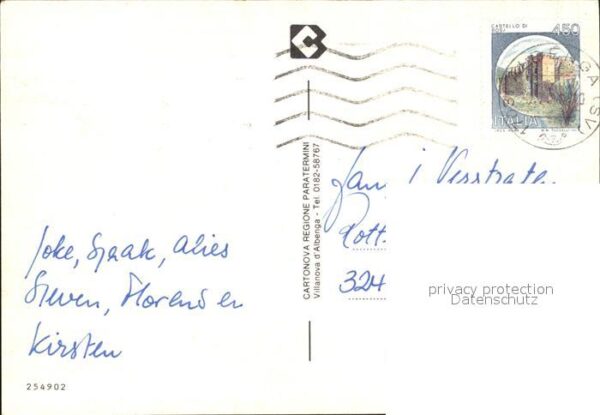 CASTELLO DI
450
ITALIA
CARTONOVA REGIONE PARATERMINI
Villanova d'Albenga - Tel. 0182-58767
Joke, Sjaak, Alies
Steven, Florens en
Kirsten
254902
Jan
Rott.
324
privacy protection
Datenschutz